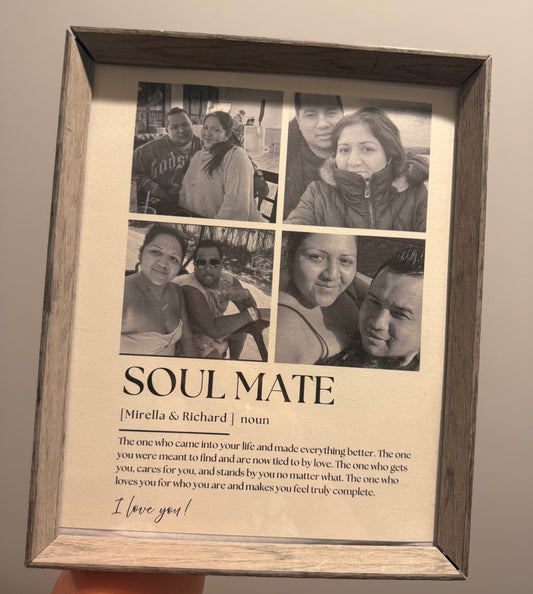 SOUL MATE
[Mirella & Richard ] noun
The one who came into your life and made everything better. The one
you were meant to find and are now tied to by love. The one who gets
you, cares for you, and stands by you no matter what. The one who
loves you for who you are and makes you feel truly complete.
I love you!